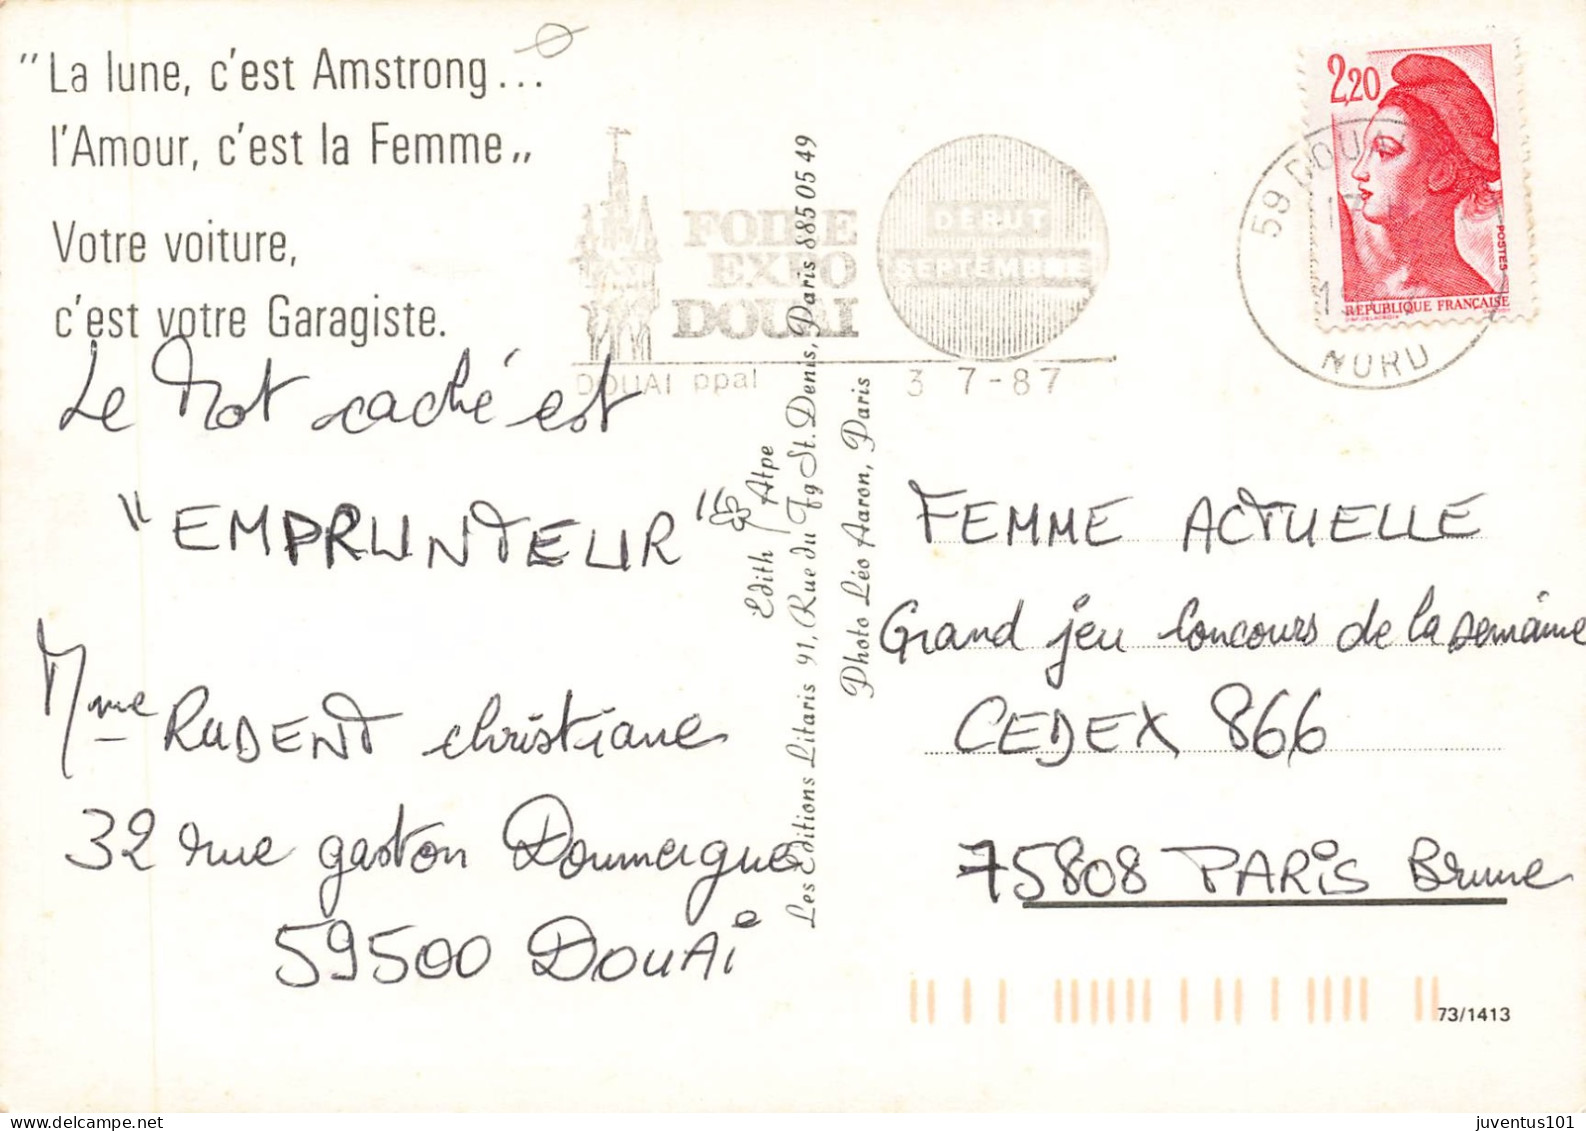 "La lune, c'est Amstrong...
l'Amour, c'est la Femme"
Votre voiture,
c'est votre Garagiste.
Le Mot caché est
"EMPRUNTEUR"
Mme RUDENT Christiane
32 rue gaston Doumergue
59500 DOUAI
FOIRE
EXPO
DOUAI
DÉBUT
SEPTEMBRE
DOUAI ppal
3 7-87
Edith Atpe
Les Editions Litaris 91, Rue du Fg St. Denis, Paris 885 05 49
Photo Léo Aaron, Paris
2,20
POSTES
REPUBLIQUE FRANÇAISE
59 DOUAI
NORD
FEMME ACTUELLE
Grand jeu Concours de la semaine
CEDEX 866
75808 PARIS Brune
73/1413
juventus101